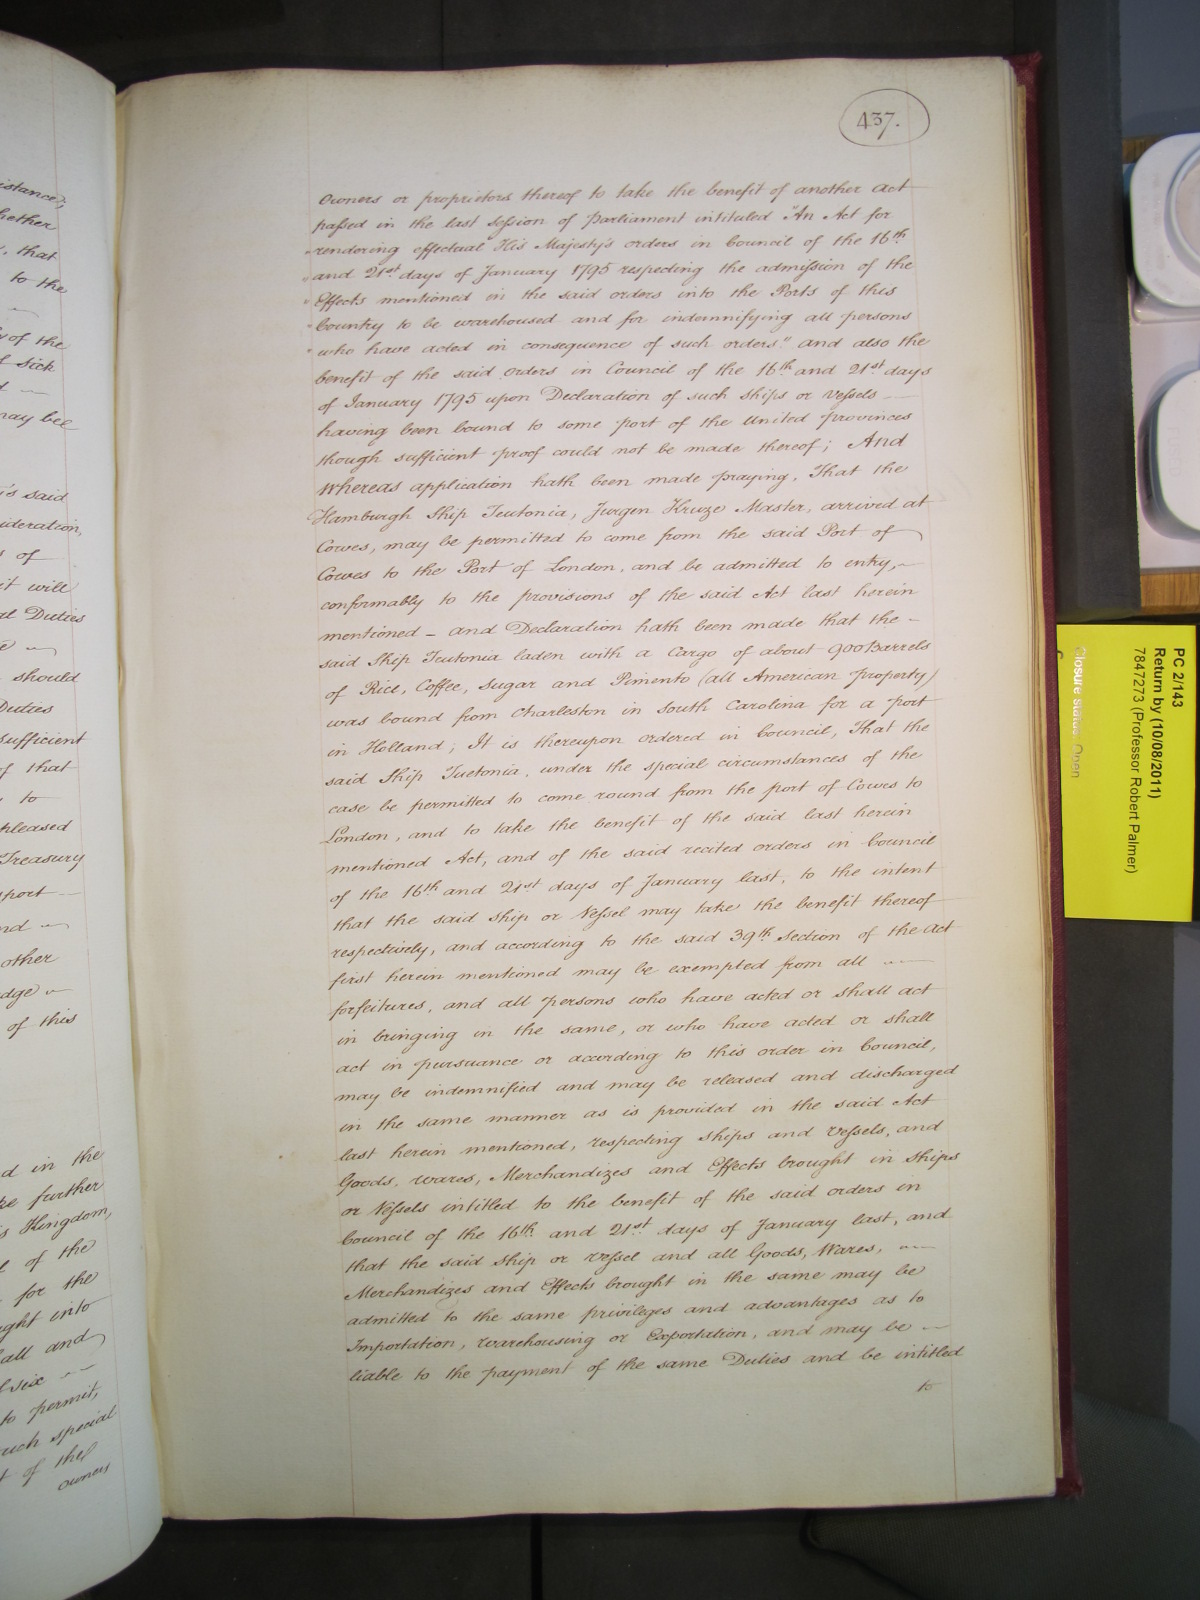 istance,
hether
, that
to the
of the
f Sick
may bee
's said
ideration,
s of
it will
al Duties
should
Duties
sufficient
of that
to
pleased
Treasury
port
nd
other
dge
of this
d in the
further
is Kingdom,
of the
for the
ght into
all and
six
to permit,
uch special
t of the
owners
437.
owners or proprietors thereof to take the benefit of another Act
passed in the last Session of Parliament intituled "An Act for
"rendering effectual His Majesty's orders in Council of the 16th
"and 21st days of January 1795 respecting the admission of the
"Effects mentioned in the said orders into the Ports of this
"Country to be warehoused and for indemnifying all persons
"who have acted in consequence of such orders." and also the
benefit of the said orders in Council of the 16th and 21st days
of January 1795 upon Declaration of such ships or vessels —
having been bound to some port of the United provinces
though sufficient proof could not be made thereof; And
Whereas application hath been made praying, That the
Hamburgh Ship Teutonia, Jurgen Kruze Master, arrived at
Cowes, may be permitted to come from the said Port of
Cowes to the Port of London, and be admitted to entry, —
conformably to the provisions of the said Act last herein
mentioned – and Declaration hath been made that the –
said Ship Teutonia laden with a Cargo of about 900 Barrels
of Rice, Coffee, Sugar and Pimento (all American property)
was bound from Charleston in South Carolina for a port
in Holland; It is thereupon ordered in Council, That the
said Ship Tuetonia, under the special circumstances of the
case be permitted to come round from the port of Cowes to
London, and to take the benefit of the said last herein
mentioned Act, and of the said recited orders in Council
of the 16th and 21st days of January last, to the intent
that the said ship or Vessel may take the benefit thereof
respectively, and according to the said 39th Section of the Act
first herein mentioned may be exempted from all —
forfeitures, and all persons who have acted or shall act
in bringing in the same, or who have acted or shall
act in pursuance or according to this order in Council,
may be indemnified and may be released and discharged
in the same manner as is provided in the said Act
last herein mentioned, respecting ships and vessels, and
Goods, wares, Merchandizes and Effects brought in ships
or Vessels intitled to the benefit of the said orders in
Council of the 16th and 21st days of January last, and
that the said ship or vessel and all Goods, Wares, —
Merchandizes and Effects brought in the same may be
admitted to the same privileges and advantages as to
Importation, warehousing or Exportation, and may be —
liable to the payment of the same Duties and be intitled
to
PC 2/143
Return by (10/08/2011)
7847273 (Professor Robert Palmer)
Closure status: Open